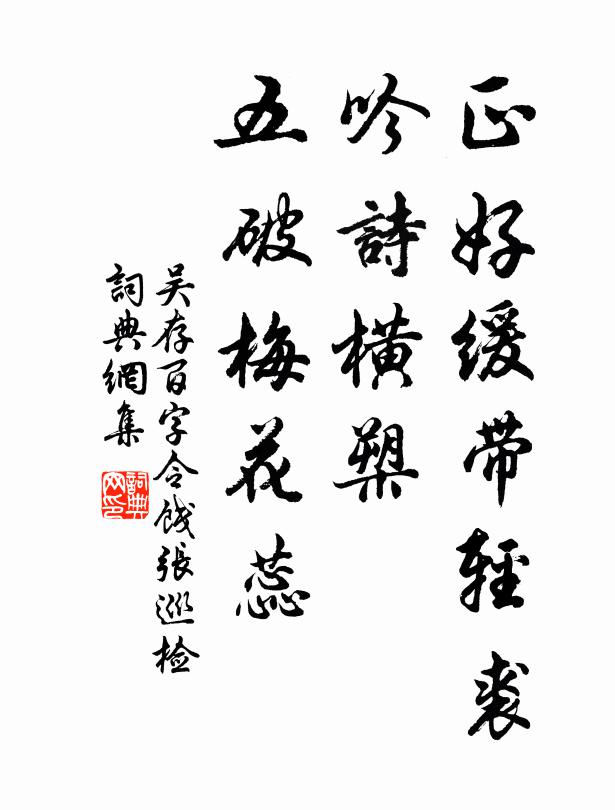 正好缓带輕裘
吟詩橫槊
五破梅花蕊
吴存百字令餞張巡檢
詞典網集
詞典网印